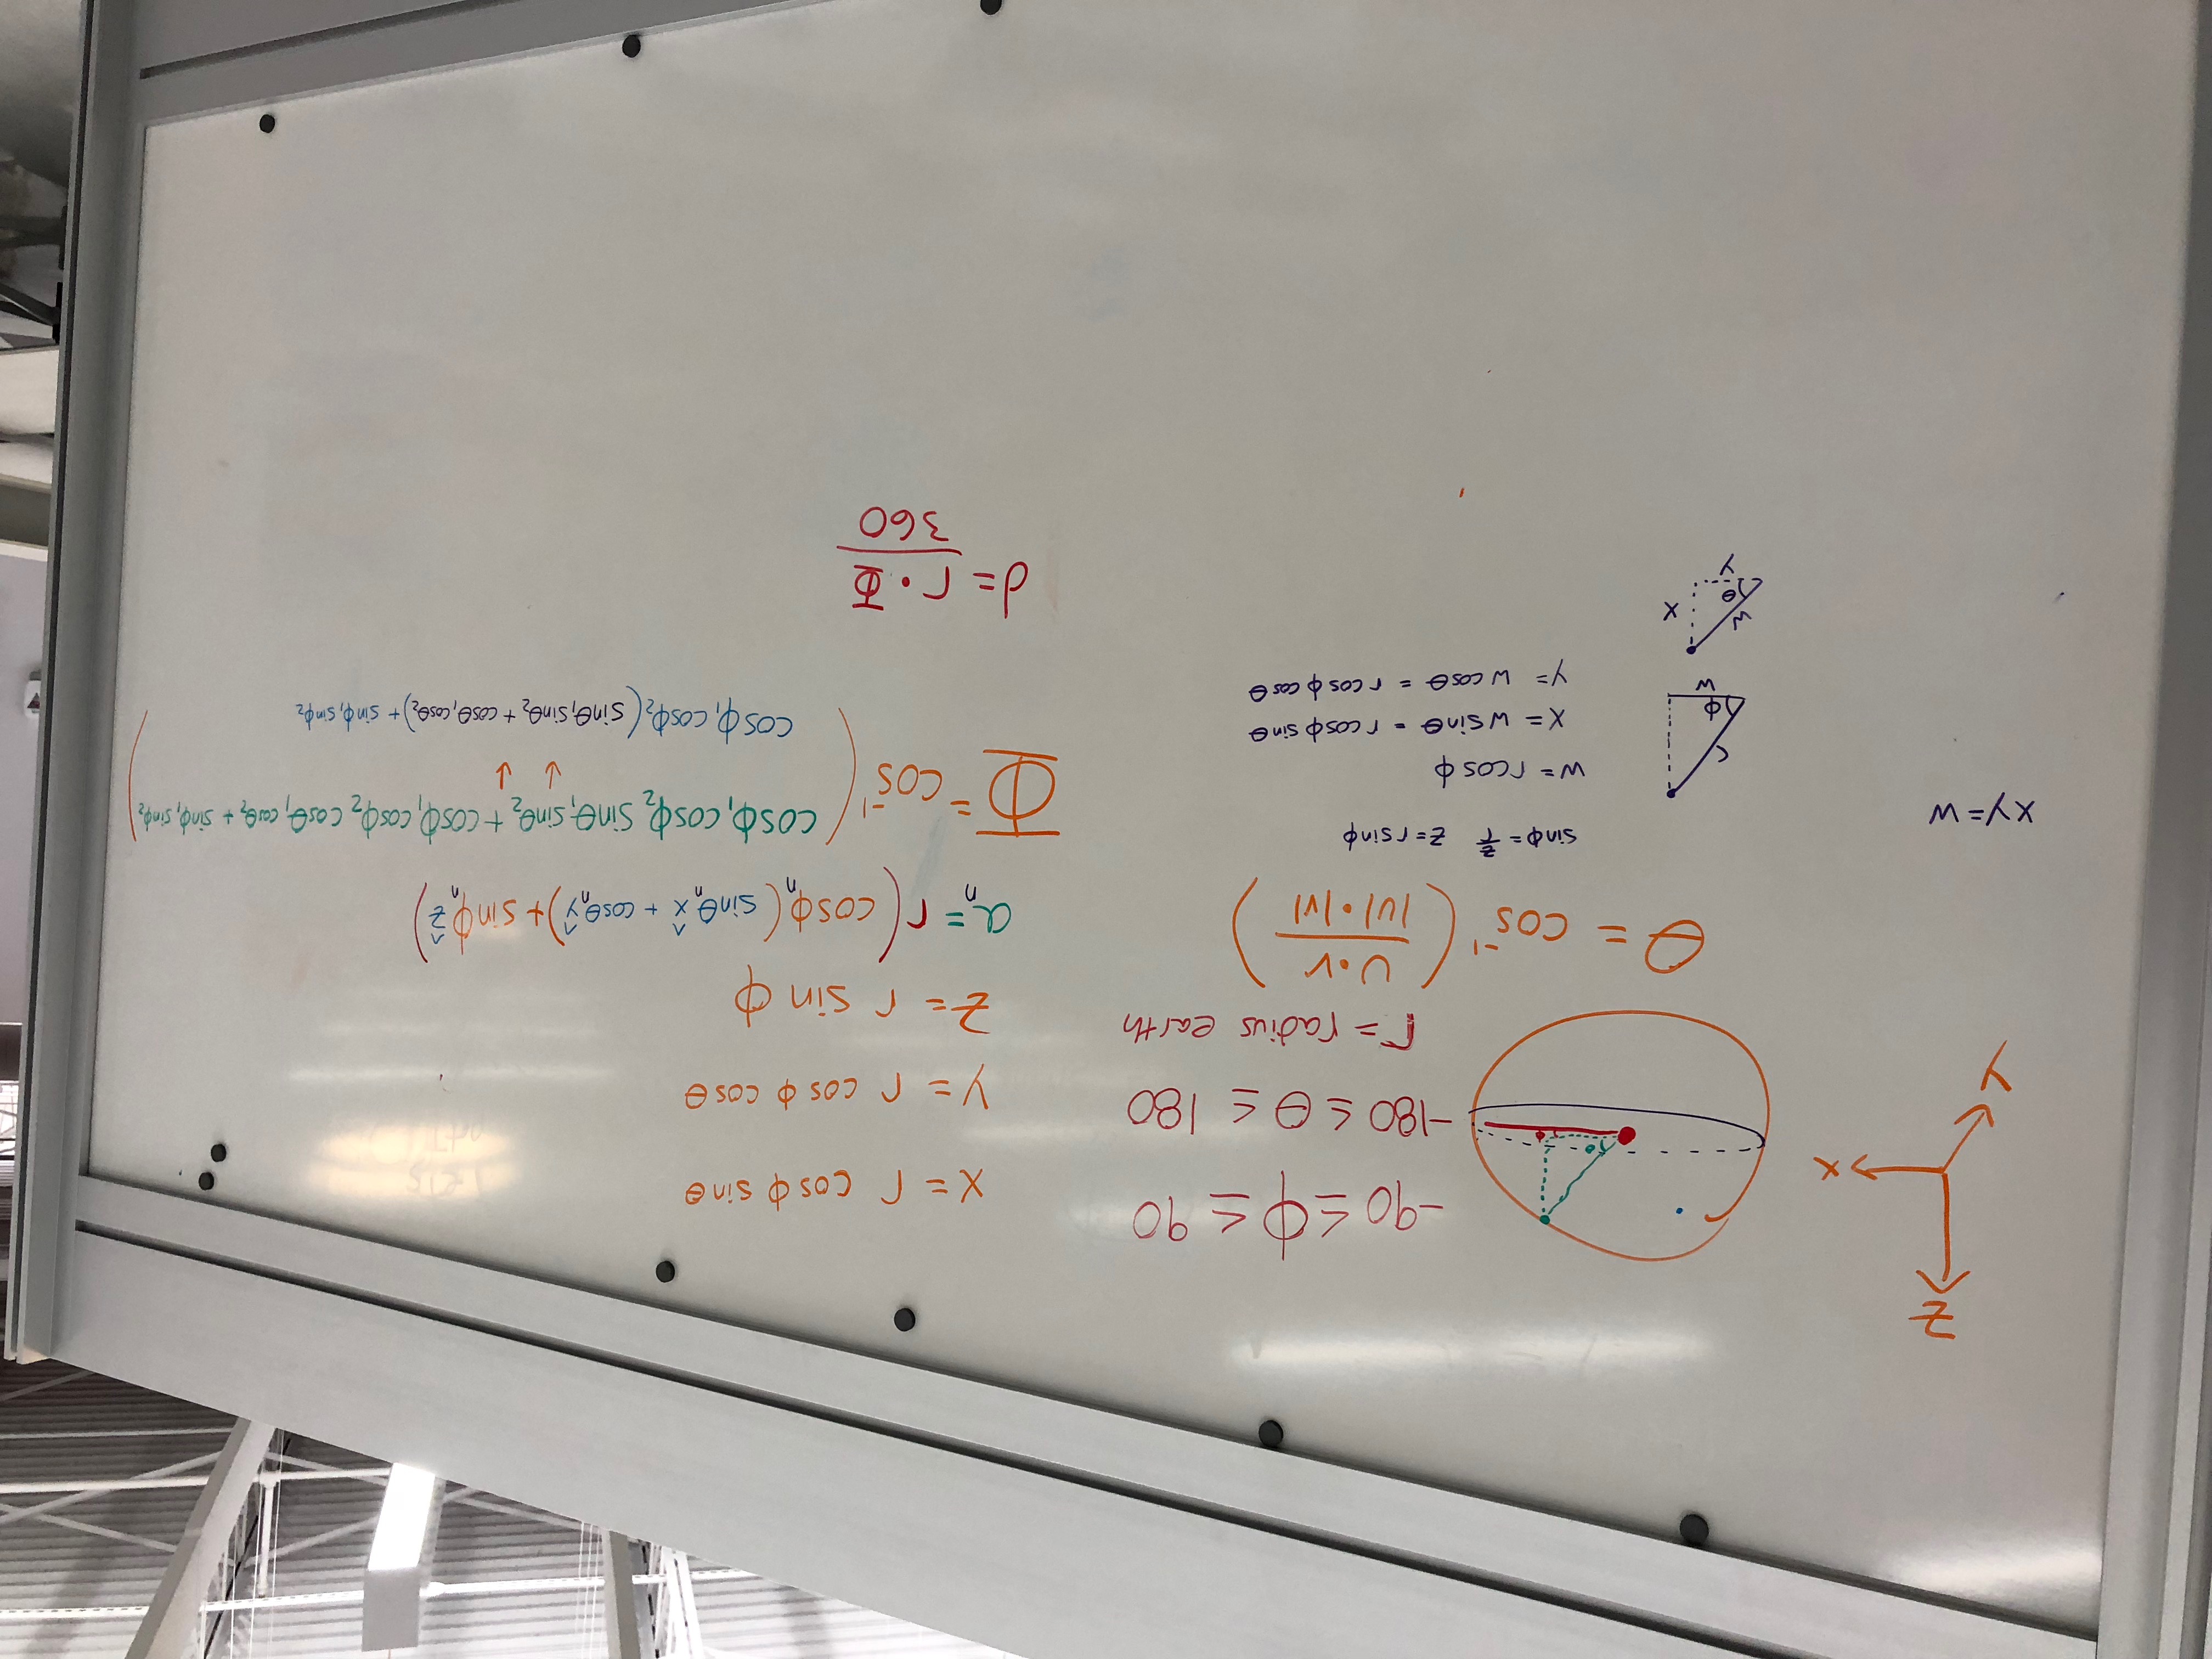 Z
X
y
-90 ≤ ϕ ≤ 90
-180 ≤ θ ≤ 180
r = radius earth
θ = cos⁻¹ ( U·V / |U|·|V| )
xy = w
sinϕ = z/r   z = r sinϕ
w = r cos ϕ
x = w sinθ = r cosϕ sinθ
y = w cosθ = r cosϕ cosθ
r
ϕ
w
w
θ
x
y
x = r cosϕ sinθ
y = r cos ϕ cosθ
z = r sin ϕ
aₙ = r( cosϕₙ( sinθₙ x̂ + cosθₙ ŷ) + sinϕₙ ẑ)
Φ = cos⁻¹ ( cosϕ₁ cosϕ₂ sinθ₁ sinθ₂ + cosϕ₁ cosϕ₂ cosθ₁ cosθ₂ + sinϕ₁ sinϕ₂
↓ ↓
cosϕ₁ cosϕ₂( sinθ₁ sinθ₂ + cosθ₁ cosθ₂) + sinϕ₁ sinϕ₂ )
d = r · Φ / 360